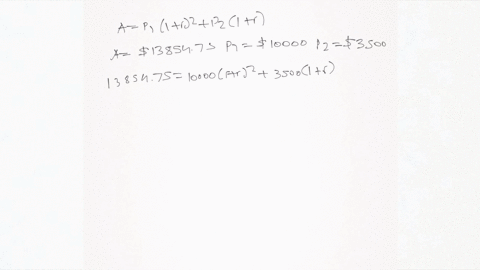 A = P1 (1+r)² + P2 (1+r)
A = $13854.75 P1 = $10000 P2 = $3500
13854.75 = 10000(1+r)² + 3500(1+r)